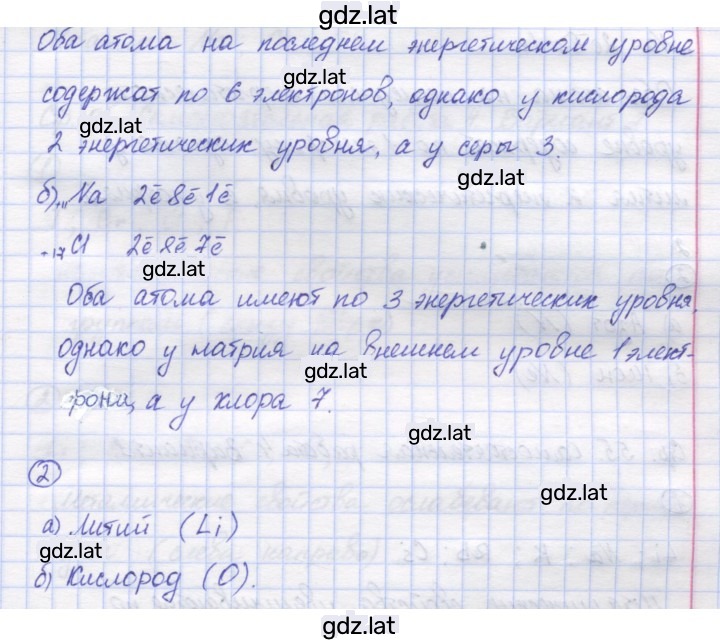 gdz.lat
Оба атома на последнем энергетическом уровне
gdz.lat
содержат по 6 электронов, однако у кислорода
gdz.lat
2 энергетических уровня, а у серы 3.
gdz.lat
б) +11Na 2ē 8ē 1ē
+17Cl 2ē 8ē 7ē
gdz.lat
Оба атома имеют по 3 энергетических уровня,
однако у натрия на внешнем уровне 1 элект-
gdz.lat
рона, а у хлора 7.
gdz.lat
2
gdz.lat
а) Литий (Li)
gdz.lat
б) Кислород (O).
gdz.lat